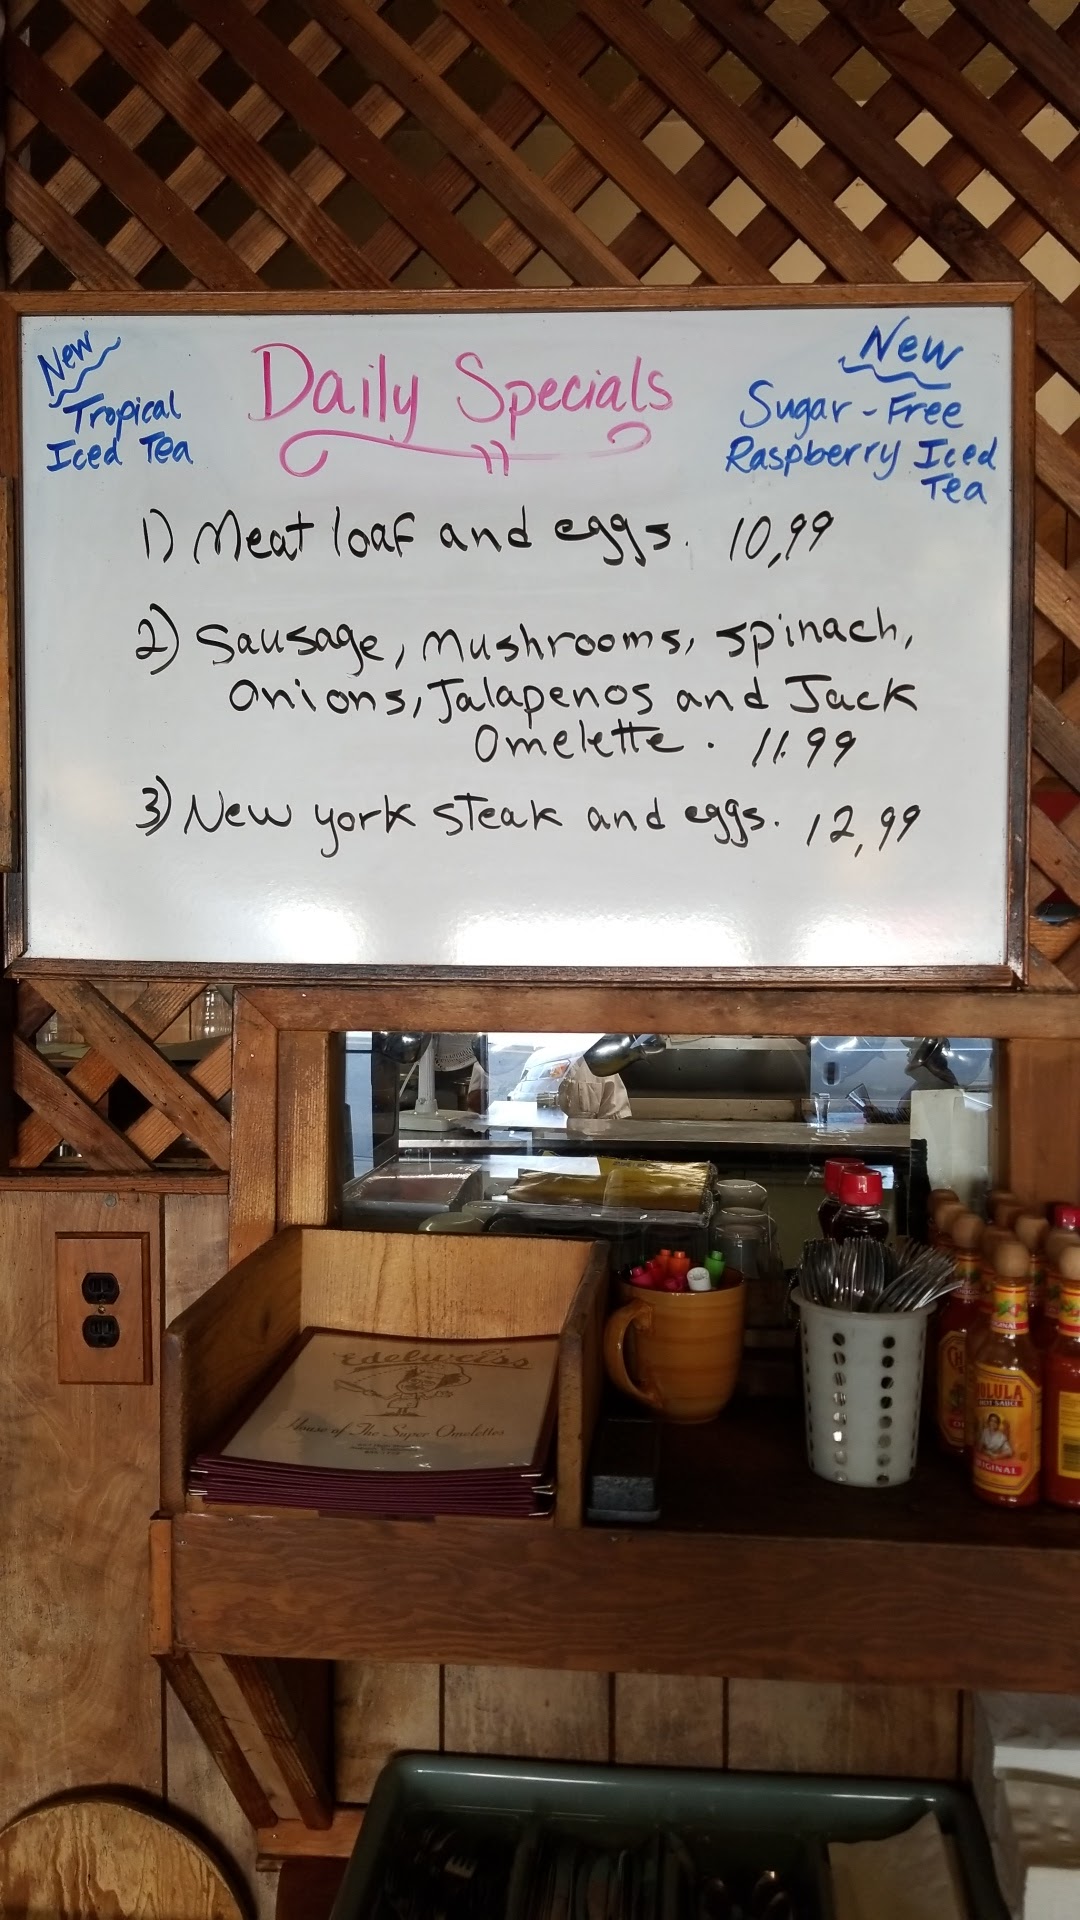 New
Tropical
Iced Tea
Daily Specials
New
Sugar-Free
Raspberry Iced
Tea
1) Meat loaf and eggs. 10,99
2) Sausage, Mushrooms, spinach,
Onions, Jalapenos and Jack
Omelette. 11.99
3) New york steak and eggs. 12,99
Edelweiss
House of The Super Omelettes
HOT SAUCE
ORIGINAL